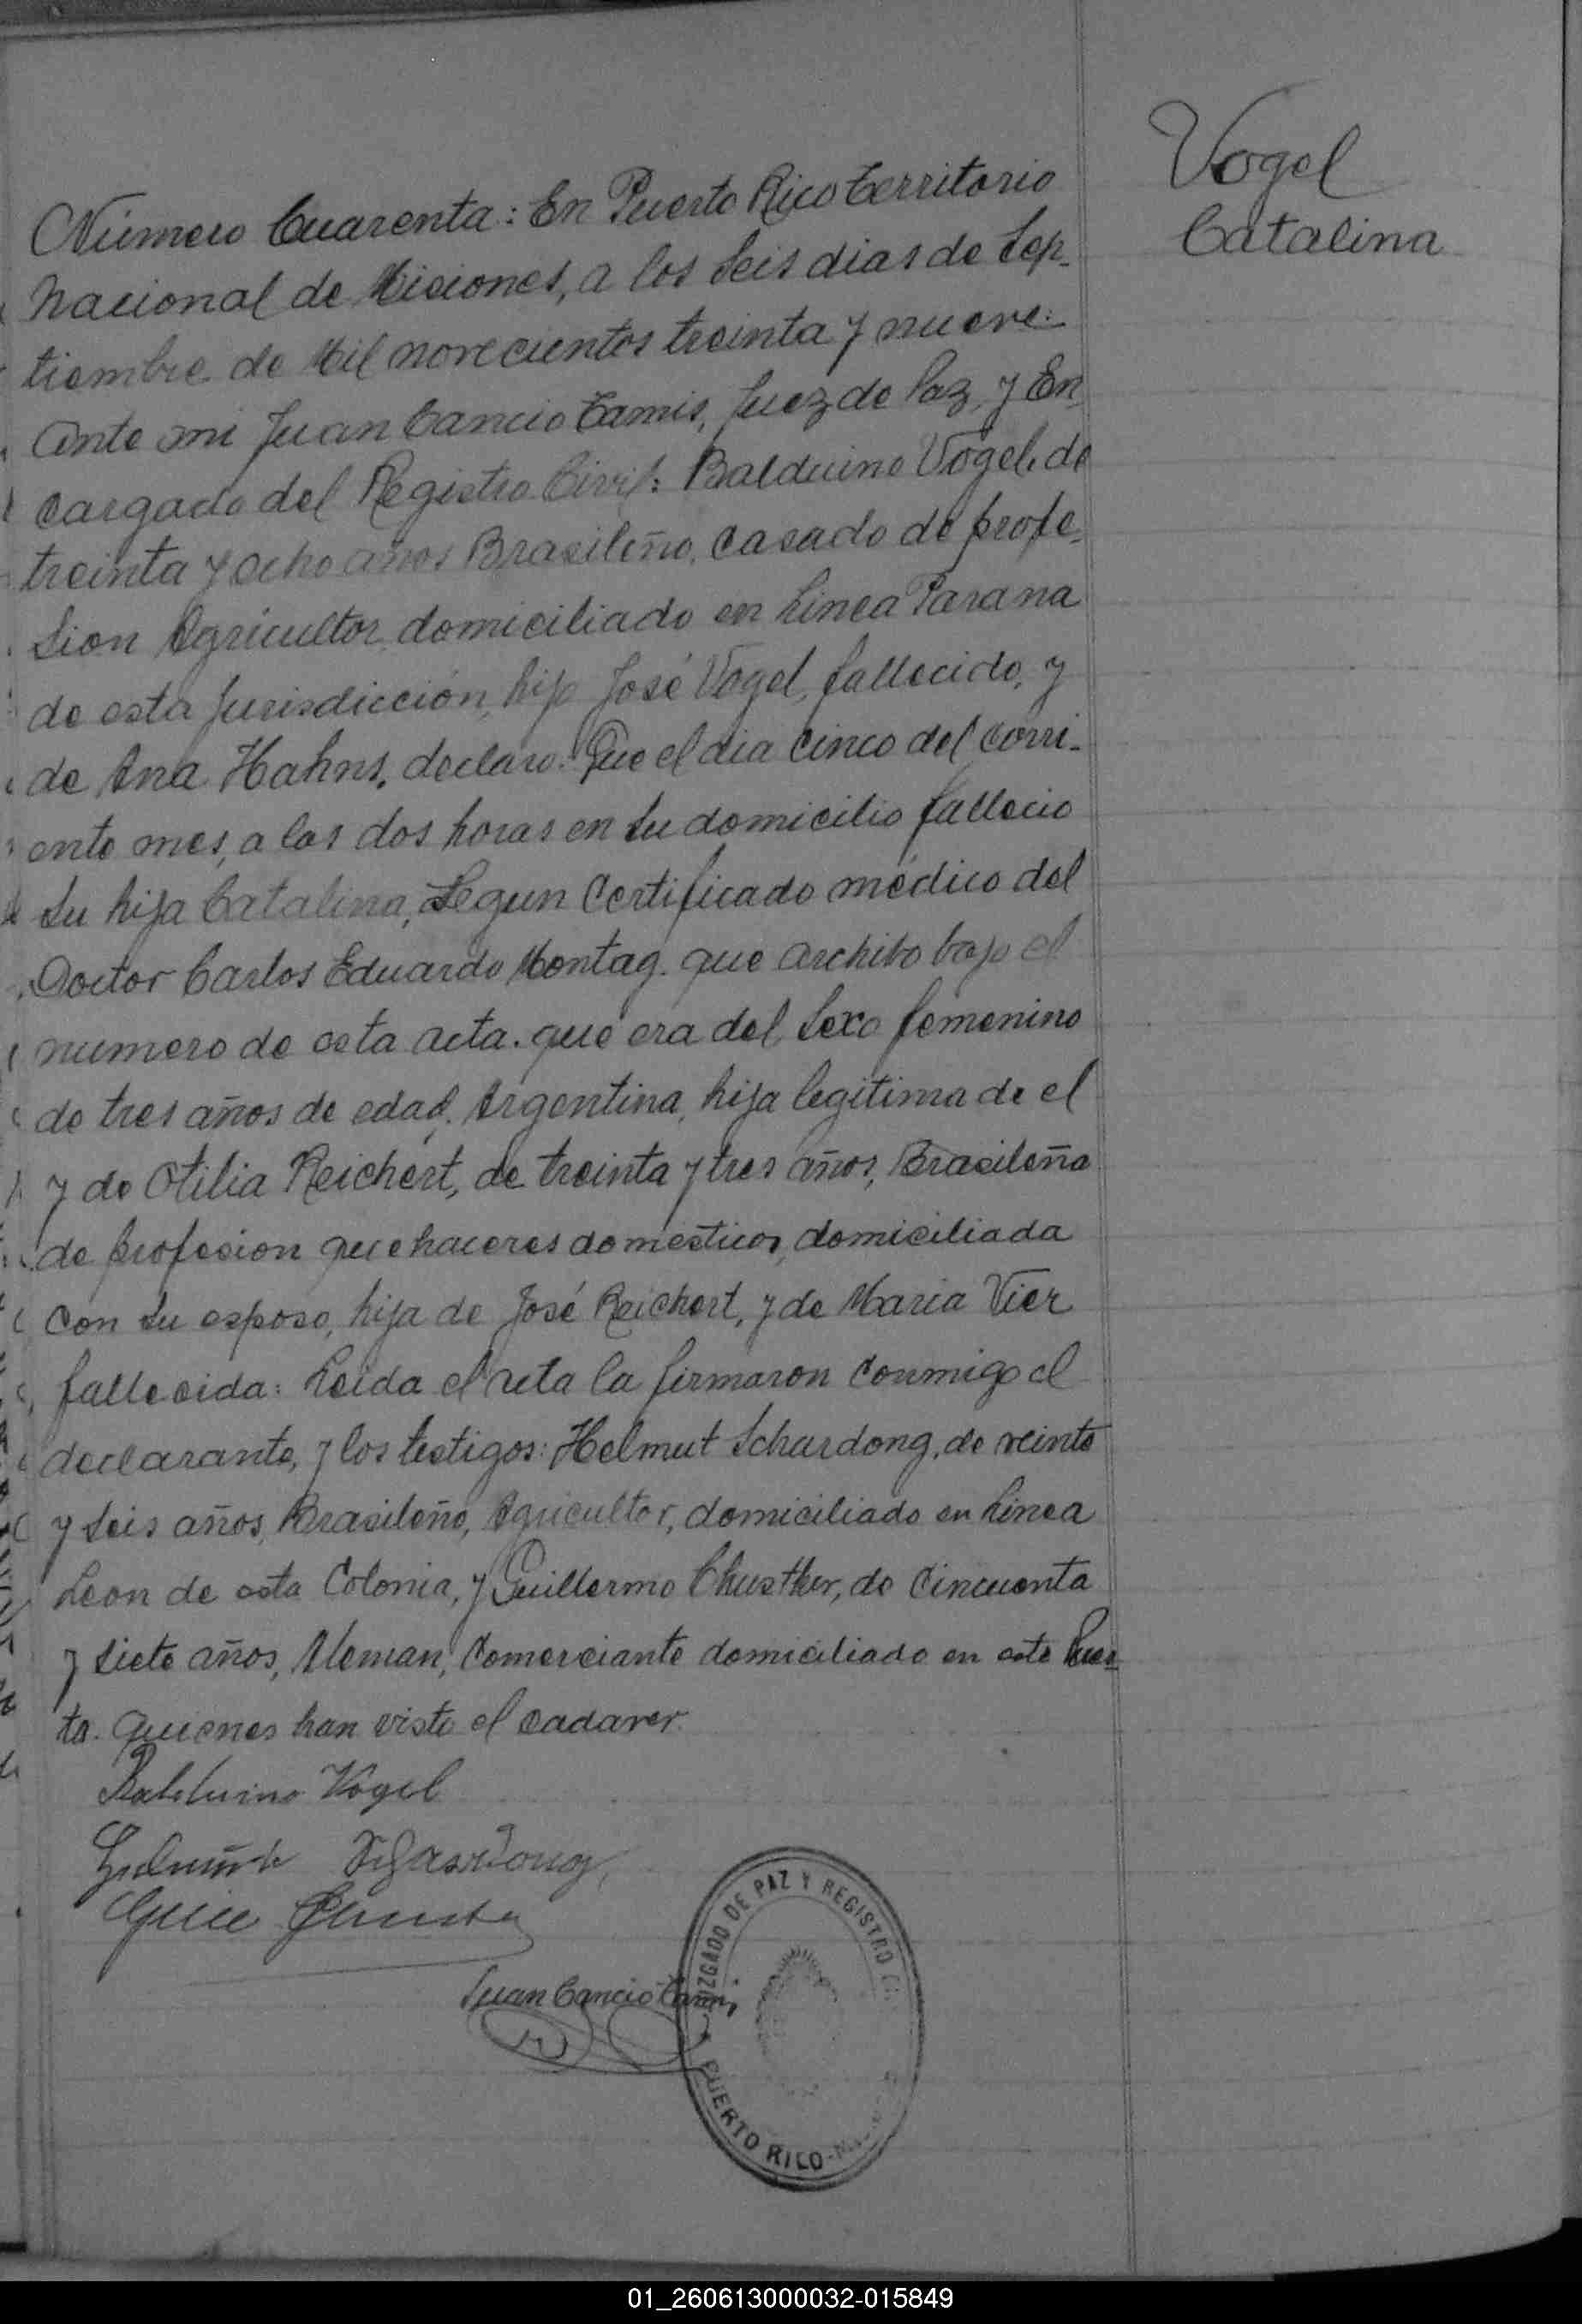 Vogel
Catalina
Número Cuarenta: En Puerto Rico territorio
Nacional de Misiones, a los Seis dias de Sep-
tiembre de Mil novecientos treinta y nueve:
Ante mi Juan Cancio Tamis, Juez de Paz, y En-
cargado del Registro Civil: Balduino Vogel, de
treinta y ocho años Brasileño, Casado de profe-
sion Agricultor, domiciliado en Linea Parana
de esta Jurisdicción, hijo José Vogel, fallecido, y
de Ana Hahns, declaro: Que el dia cinco del corri-
ente mes, a las dos horas en su domicilio fallecio
su hija Catalina, Segun Certificado médico del
Doctor Carlos Eduardo Montag. que archibo bajo el
numero de esta acta. que era del Sexo femenino
de tres años de edad. Argentina, hija legitima de el
y de Otilia Reichert, de treinta y tres años, Brasileña
de profesion quehaceres domesticos, domiciliada
con su esposo, hija de José Reichert, y de Maria Vier
fallecida: Leida el acta la firmaron Conmigo el
declarante, y los testigos: Helmut Schardong, de veinte
y Seis años, Brasileño, Agricultor, domiciliado en Linea
Leon de esta Colonia, y Guillermo Chusther, de Cincuenta
y Siete años, Aleman, Comerciante domiciliado en este Puer-
to. quienes han visto el cadaver.
Balduino Vogel
Helmuth Schardong
Juan Cancio Tamis
JUZGADO DE PAZ Y REGISTRO
PUERTO RICO
01_260613000032-015849